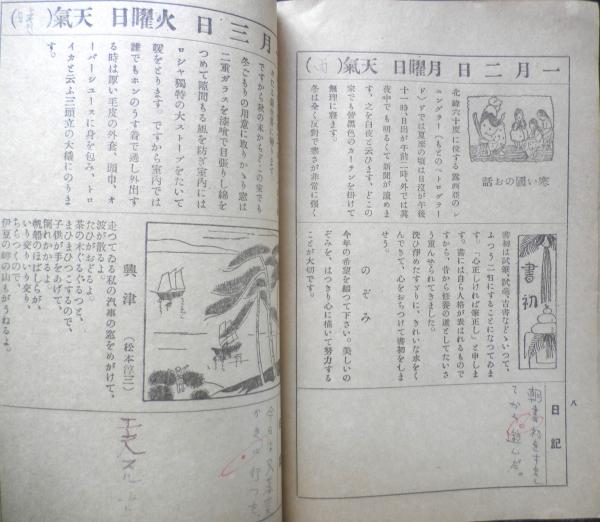 一月二日 月曜日 天氣( )
寒い國のお話
北緯六十度に位する露西亞のレ
ニングラード(もとのペトログラー
ド)アでは夏至の頃は日沒が午後
十一時、日出が午前二時、外では眞
夜中でも明るくて新聞が讀めま
す。之を白夜と云ひます。どこの
家でも皆黑色のカーテンを掛けて
無理に寢ます。
冬は全く反對で寒さが非常に强く
書初
書初は試筆、試毫、吉書などゝいつて、
ふつう二日にすることになつてゐま
す。「心正しければ筆正し」と申しま
す。書には自ら人格が表はれるもので
すから、昔から修養の道としてたいさ
う重んぜられてきました。
洗ひ淨めたすゞりに、きれいな水をく
んできて、心をおちつけて書初をしま
せう。
のぞみ
今年の希望を細つて下さい。美しいの
ぞみを、はつきり心に描いて努力する
ことが大切です。
八
日記
朝書初をすまし
て
遊んだ。
月三日 火曜日 天氣(晴)
ですから秋の末からどこの家でも
冬ごもりの用意に取りかゝり窓は
二重ガラスを漆喰で目張りし綿を
つめて隙間もる風を防ぎ室内には
ロシヤ獨特の大ストーブをたいて
暖をとります。ですから室內では
誰でもホンのうす着で通し外出す
る時は厚い毛皮の外套、頭巾、オ
ーバーシユースに身を包み、トロ
イカと云ふ三頭立の大橇にのりま
す。
興津
(松本淳三)
走つてゐる私の汽車の窓をめがけて、
波が散るよ
たひがおどるよ
茶の木ぐるぐるつと、
まひまひつこするので、
子供が手をあげて、
倒れかかるよ
いり變りいり變り、
帆船のほばしらが、
ちらつくので、
伊夏の岬の山もがうねるよ。
今日は
行つた